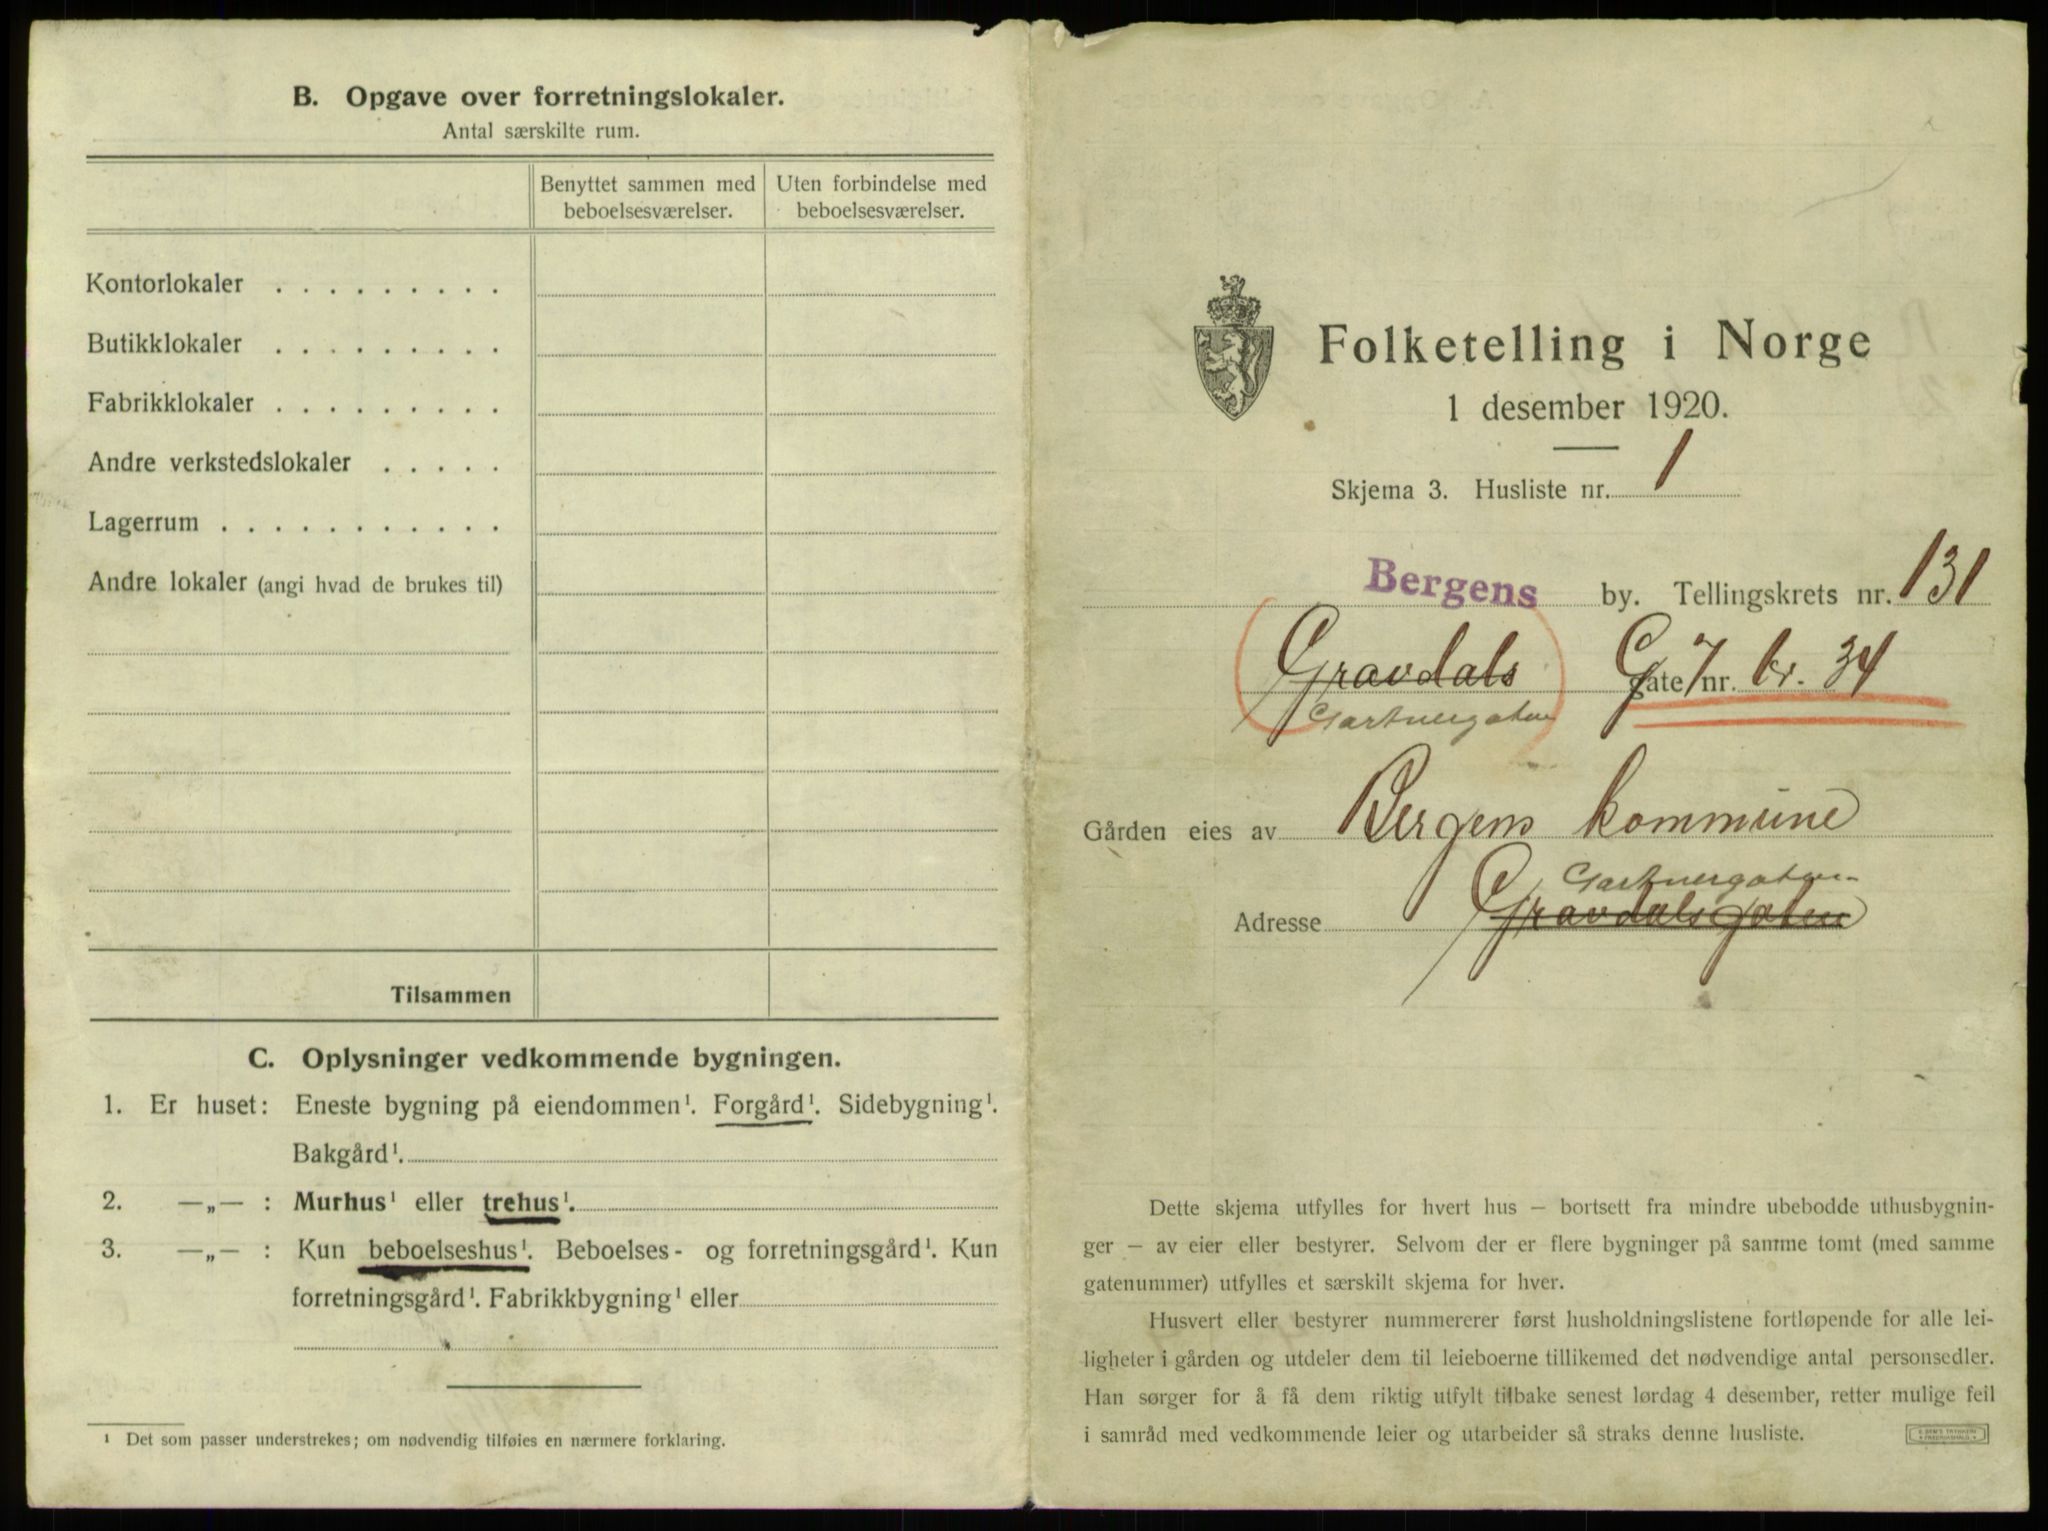 B. Opgave over forretningslokaler.
Antal særskilte rum.
Benyttet sammen med beboelsesværelser.
Uten forbindelse med beboelsesværelser.
Kontorlokaler . . . . . . . . .
Butikklokaler . . . . . . . . .
Fabrikklokaler . . . . . . . . .
Andre verkstedslokaler . . . . .
Lagerrum . . . . . . . . . . .
Andre lokaler (angi hvad de brukes til)
Tilsammen
C. Oplysninger vedkommende bygningen.
1. Er huset: Eneste bygning på eiendommen¹. Forgård¹. Sidebygning¹.
Bakgård¹.
2. —„— : Murhus¹ eller trehus¹.
3. —„— : Kun beboelseshus¹. Beboelses- og forretningsgård¹. Kun
forretningsgård¹. Fabrikkbygning¹ eller
¹ Det som passer understrekes; om nødvendig tilføies en nærmere forklaring.
Folketelling i Norge
1 desember 1920.
Skjema 3. Husliste nr. 1
Bergens by. Tellingskrets nr. 131
Gravdals gate nr. 34
Gartnergaten
Gården eies av Bergens kommune
Gartnergaten
Adresse Gravdalsgaten
Dette skjema utfylles for hvert hus — bortsett fra mindre ubebodde uthusbygnin-
ger — av eier eller bestyrer. Selvom der er flere bygninger på samme tomt (med samme
gatenummer) utfylles et særskilt skjema for hver.
Husvert eller bestyrer nummererer først husholdningslistene fortløpende for alle lei-
ligheter i gården og utdeler dem til leieboerne tillikemed det nødvendige antal personsedler.
Han sørger for å få dem riktig utfylt tilbake senest lørdag 4 desember, retter mulige feil
i samråd med vedkommende leier og utarbeider så straks denne husliste.